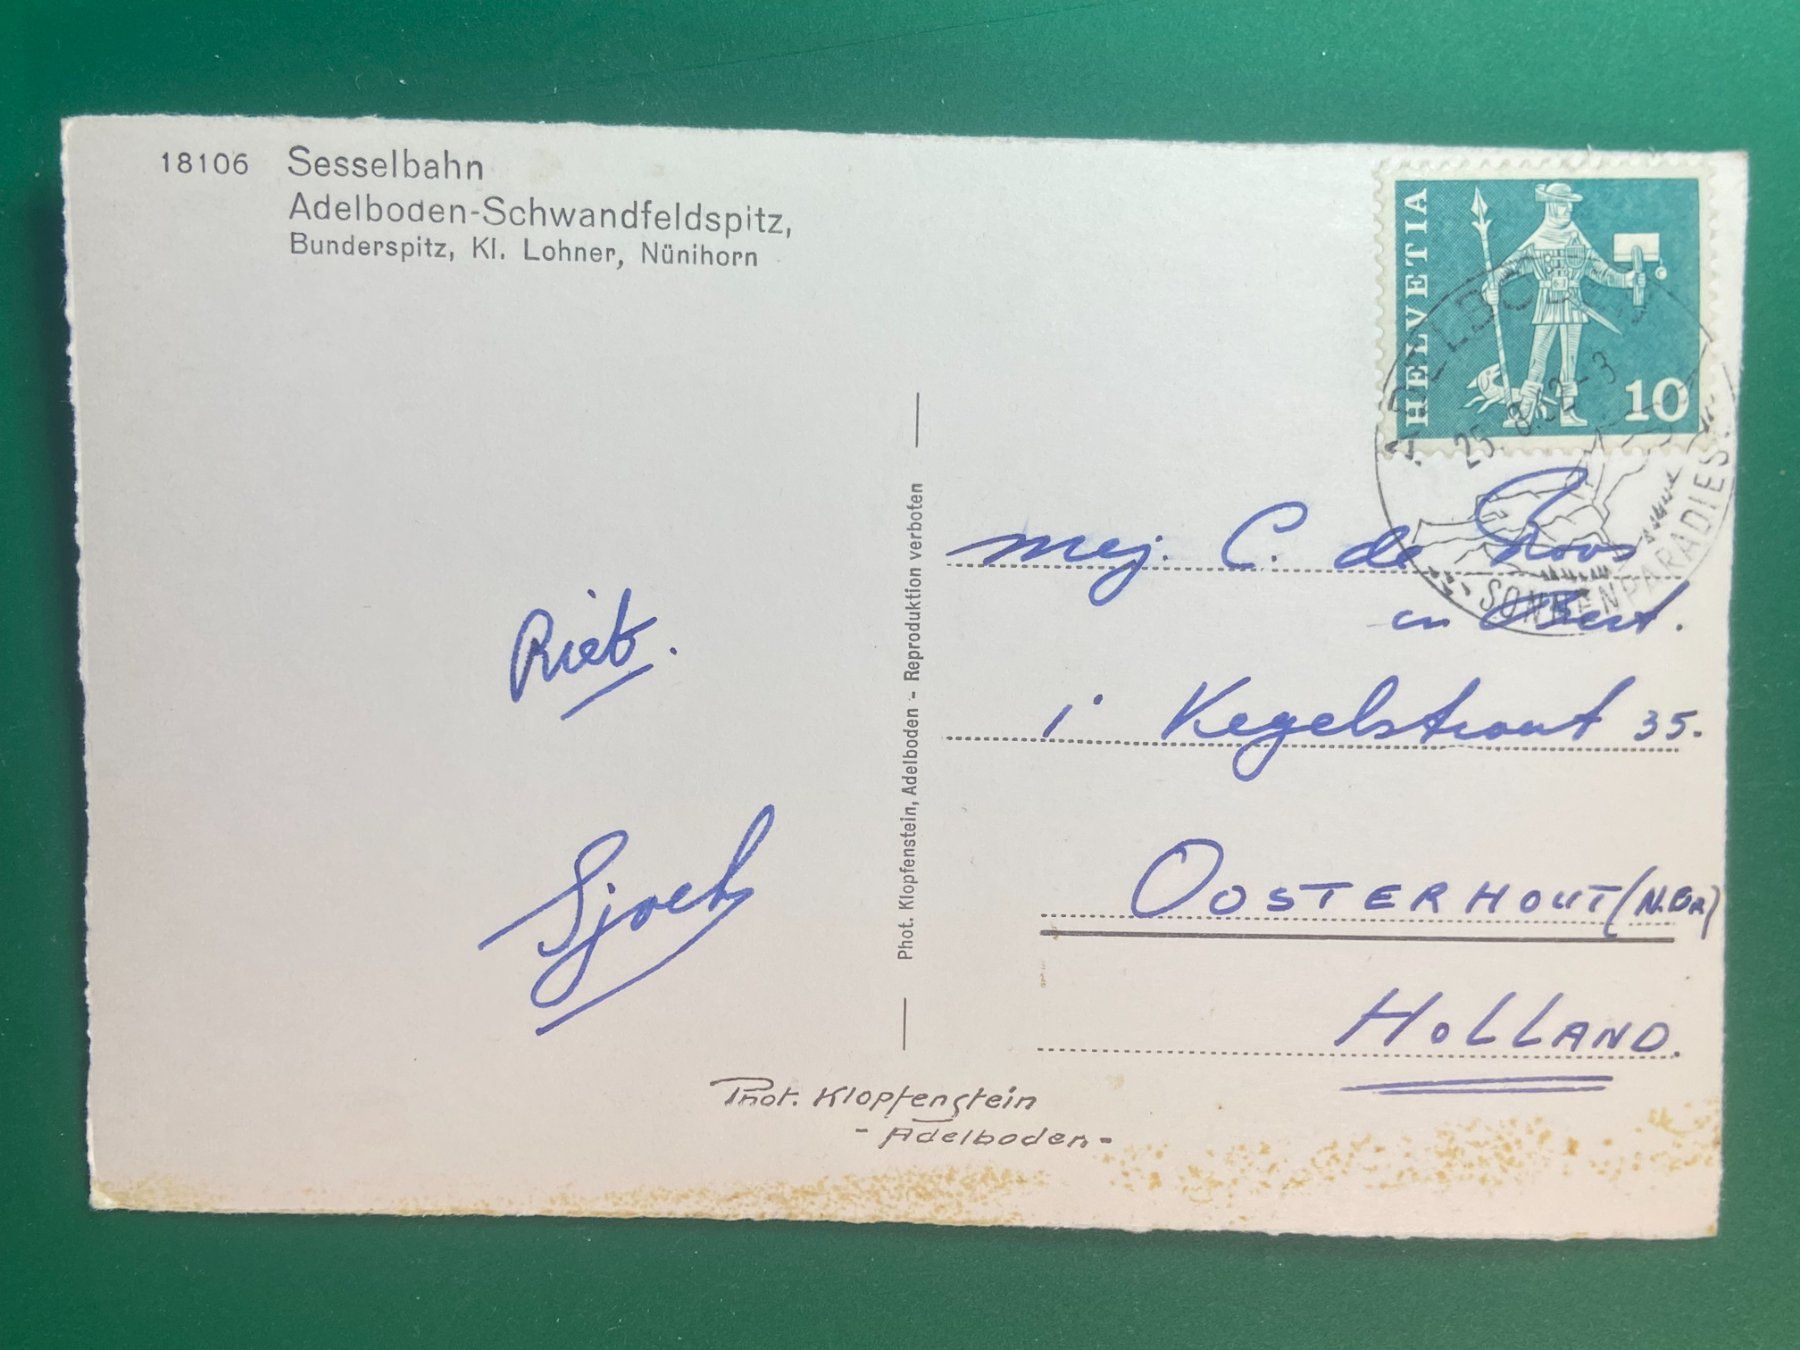 18106 Sesselbahn
Adelboden-Schwandfeldspitz,
Bunderspitz, Kl. Lohner, Nünihorn
HELVETIA
10
ADELBODEN
25. 8.62-3
SONNENPARADIES
mej. C. de Roos
en Bert.
Kegelstraat 35.
OOSTERHOUT (N.BR)
HOLLAND.
Riet.
Sjoch
Phot. Klopfenstein, Adelboden - Reproduktion verboten
Phot. Klopfenstein
- Adelboden -